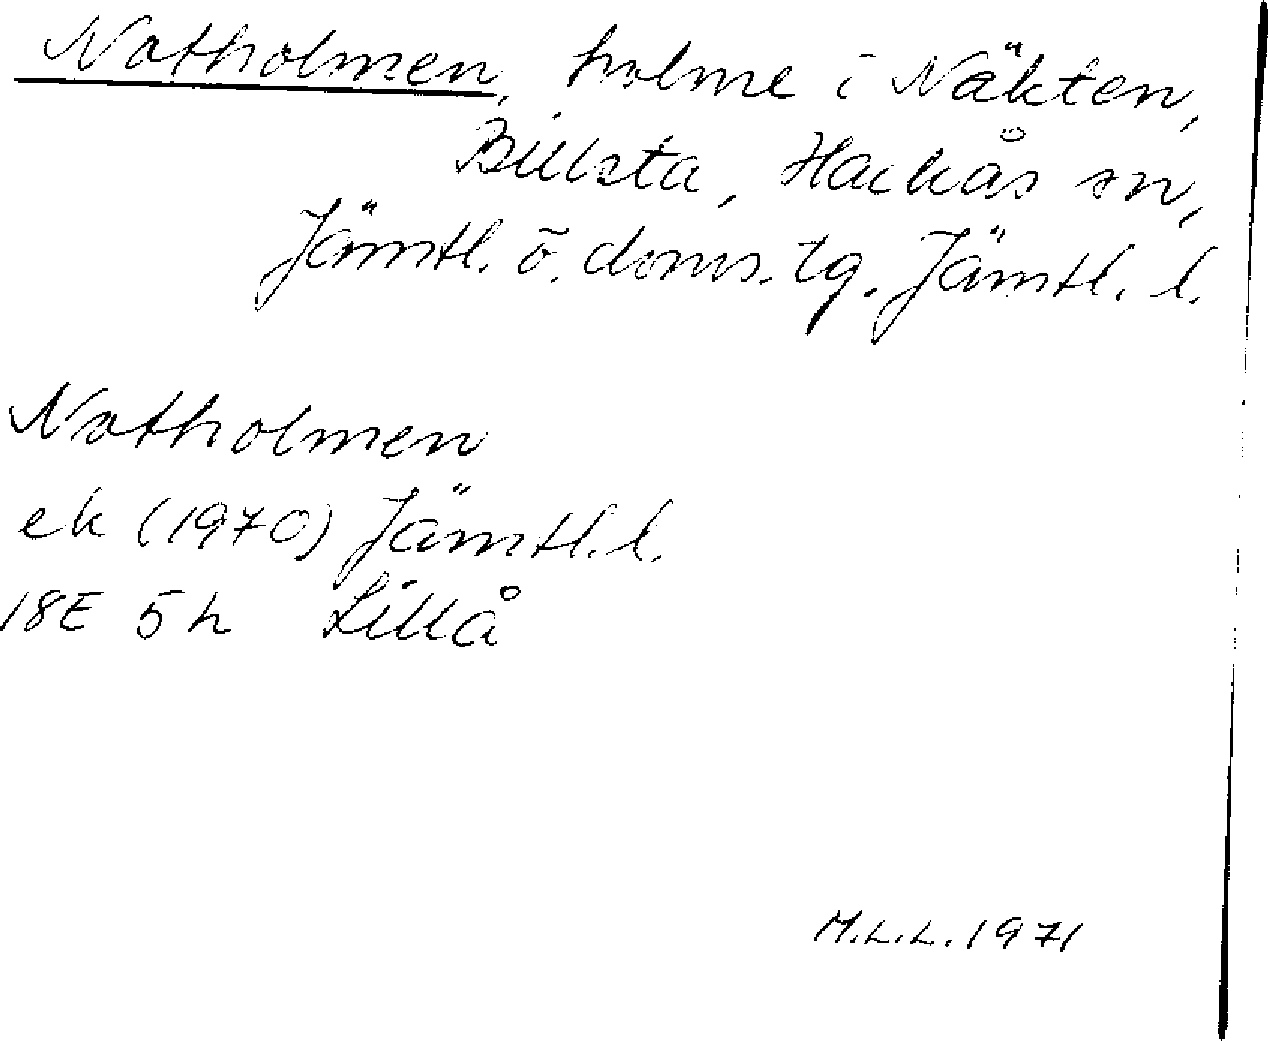 Notholmen, holme i Näkten,
Billsta, Hackås sn,
Jämtl. ö. doms. tg. Jämtl. l.
Notholmen
ek (1970) Jämtl. l.
18E 5h Lillå
M.L.L. 1971